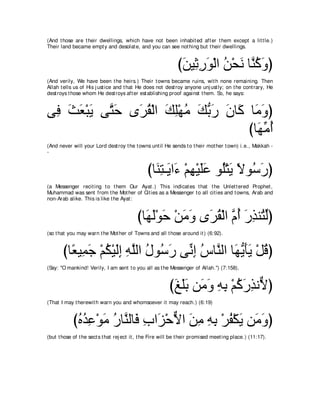 (And those are their dwellings, which have not been inhabited after them except a little.)
Their land became empty and desolate, and you can see nothing but their dwellings.
(وَكُنَّا نَحْنُ الْوَرِثِينَ)
(And verily, We have been the heirs.) Their towns became ruins, with none remaining. Then
Allah tells us of His justice and that He does not destroy anyone unjustly; on the contrary, He
destroys those whom He destroys after establishing proof against them. So, he says:
(وَمَا كَانَ رَبُّكَ مُهْلِكَ الْقُرَى حَتَّى يَبْعَثَ فِى
أُمِّهَا)
(And never will your Lord destroy the towns until He sends to their mother town) i.e., Makkah -
-
(رَسُولاً يَتْلُو عَلَيْهِمْ ءَايَـتِنَا)
(a Messenger reciting to them Our Ayat.) This indicates that the Unlettered Prophet,
Muhammad was sent from the Mother of Cities as a Messenger to all cities and towns, Arab and
non-Arab alike. This is like the Ayat:
(لِّتُنذِرَ أُمَّ الْقُرَى وَمَنْ حَوْلَهَا)
(so that you may warn the Mother of Towns and all those around it) (6:92).
(قُلْ يَأَيُّهَا النَّاسُ إِنِّى رَسُولُ اللَّهِ إِلَيْكُمْ جَمِيعًا)
(Say: "O mankind! Verily, I am sent to you all as the Messenger of Allah.") (7:158),
(لاٌّنذِرَكُمْ بِهِ وَمَن بَلَغَ)
(That I may therewith warn you and whomsoever it may reach.) (6:19)
(وَمَن يَكْفُرْ بِهِ مِنَ الاٌّحْزَابِ فَالنَّارُ مَوْعِدُهُ)
(but those of the sects that reject it, the Fire will be their promised meeting place.) (11:17).